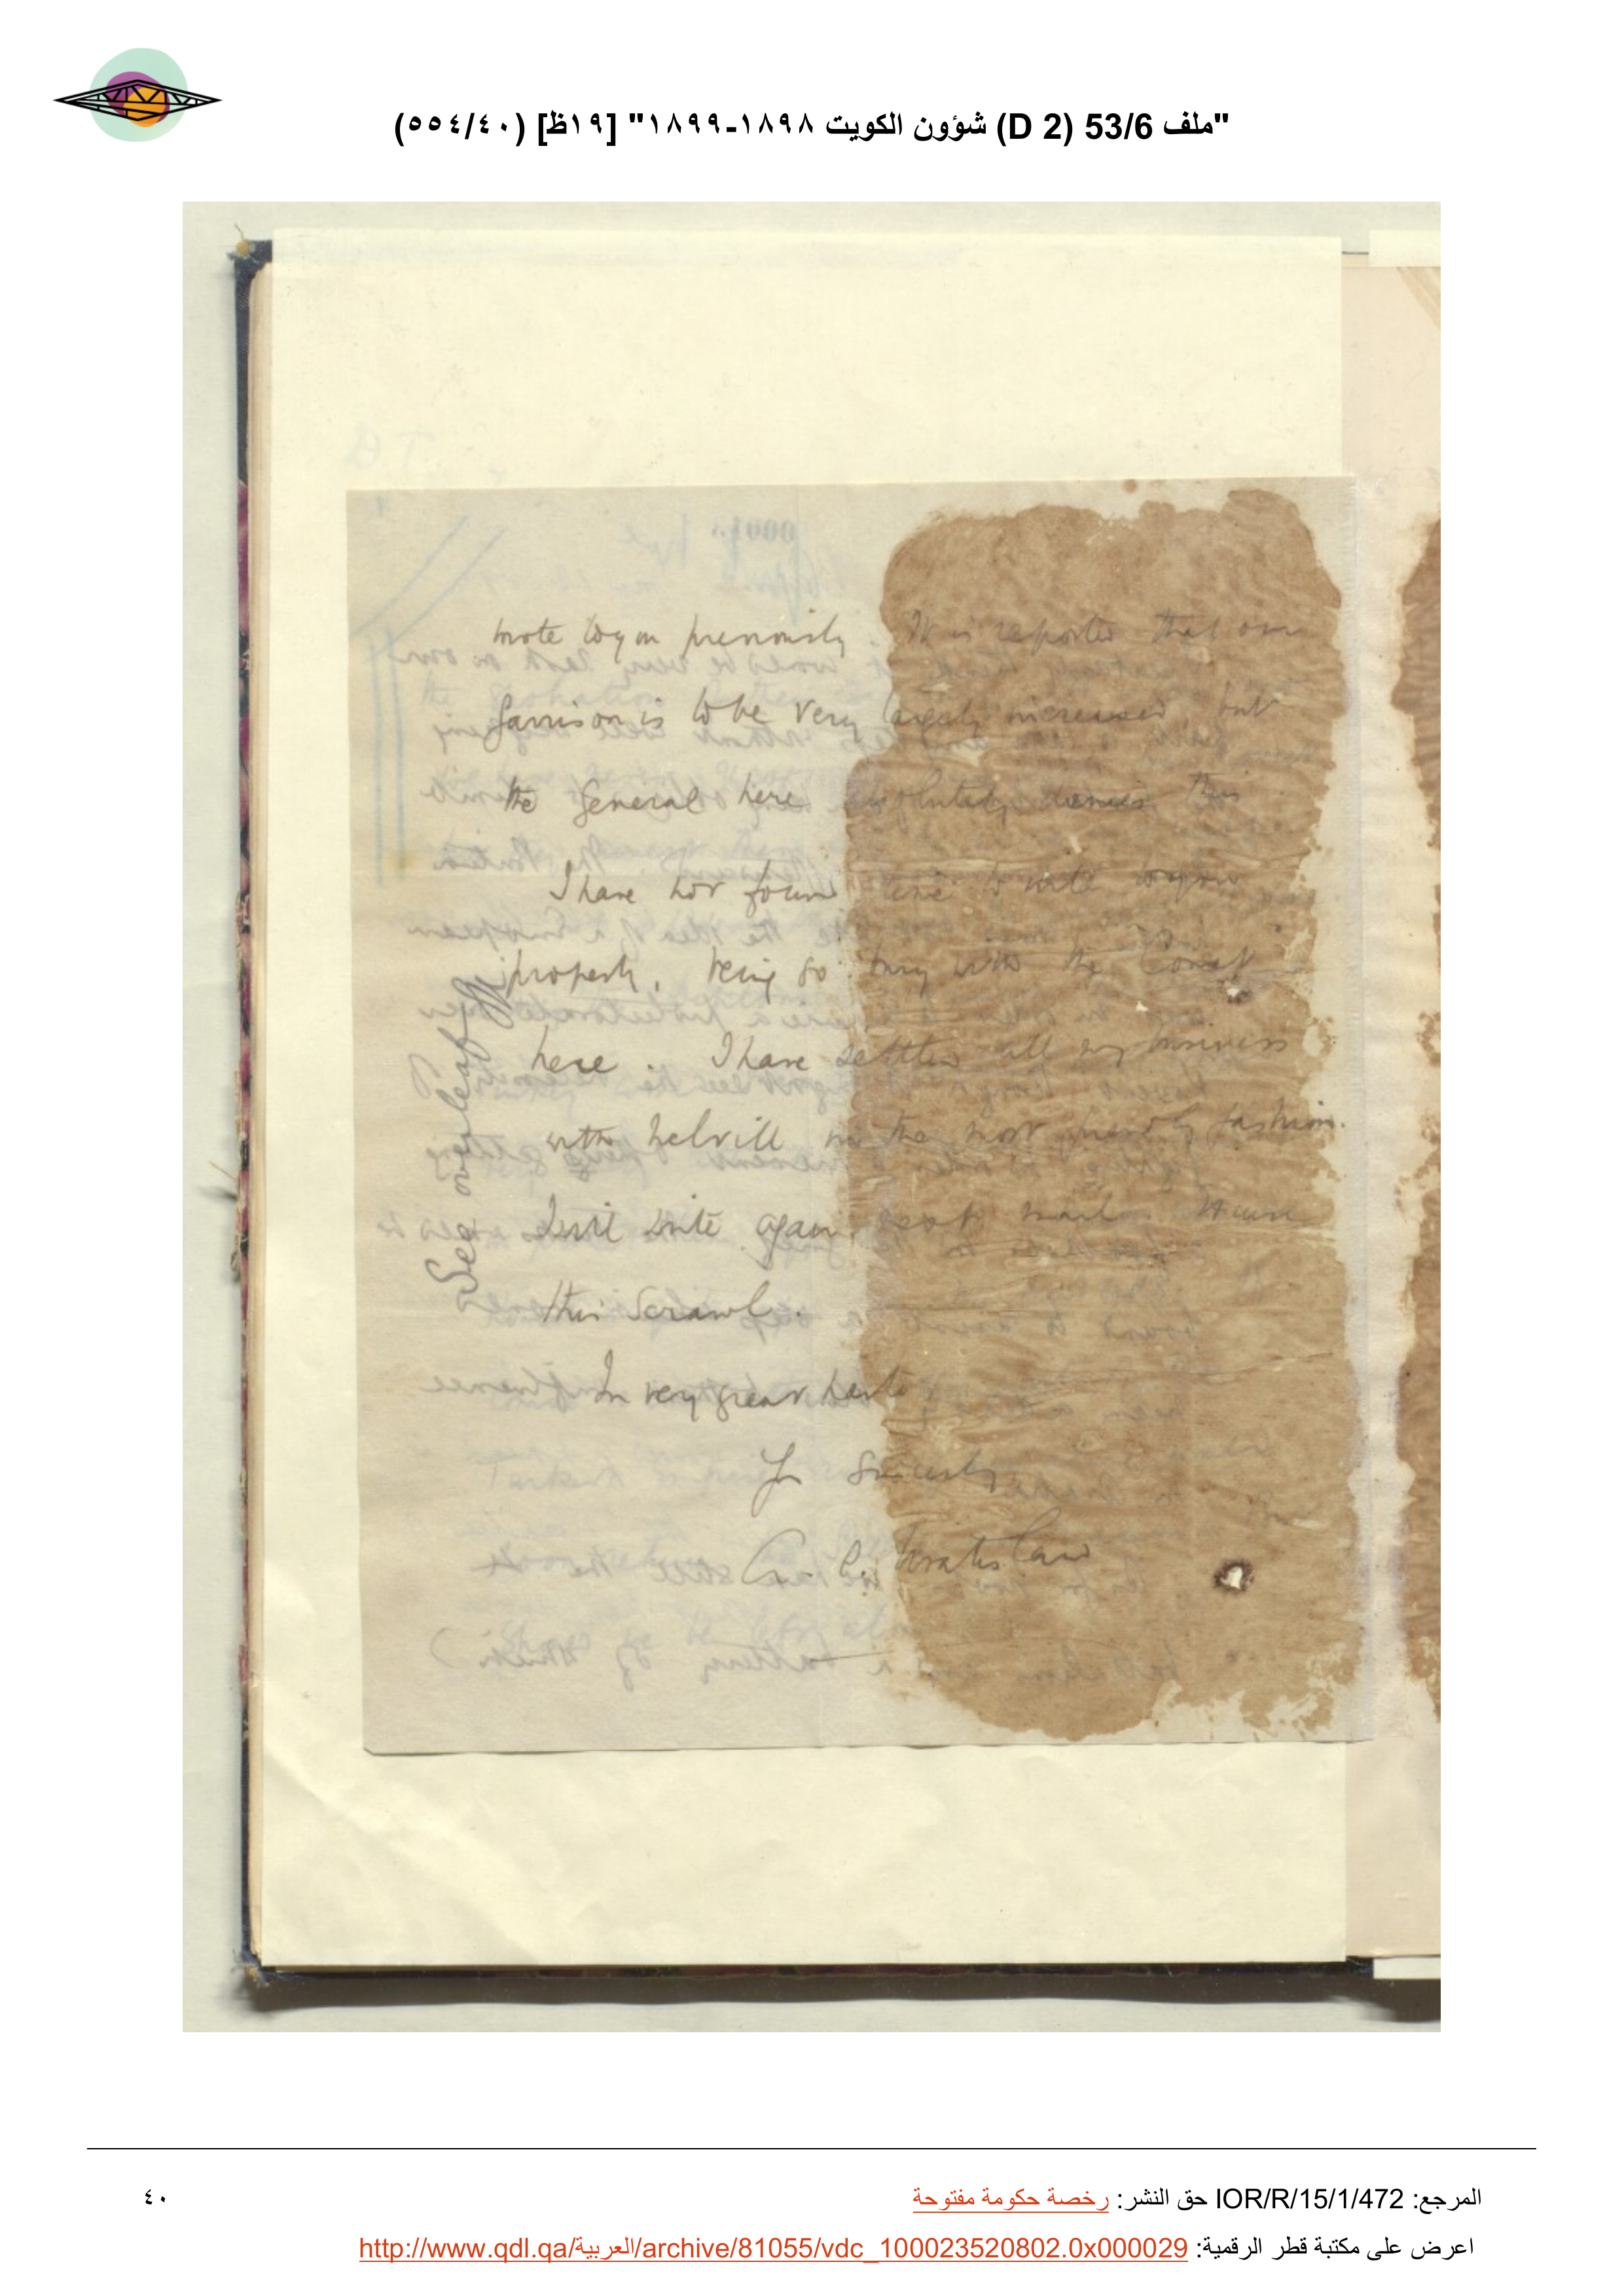 "ملف 53/6 (D 2) شؤون الكويت ١٨٩٨-١٨٩٩" [١٩ظ] (٥٥٤/٤٠)
wrote to you previously. It is reported that our
Garrison is to be very largely increased, but
the General here absolutely denies this
I have not found time to write to you
properly, being so busy with the
here. I have settled all my business
with Melvill in the most friendly fashion.
I will write again next mail. Excuse
this scrawl.
In very great haste
Yrs Sincerely
A. C. Wratislaw
See over leaf
المرجع: IOR/R/15/1/472 حق النشر: رخصة حكومة مفتوحة
٤٠
اعرض على مكتبة قطر الرقمية: http://www.qdl.qa/العربية/archive/81055/vdc_100023520802.0x000029